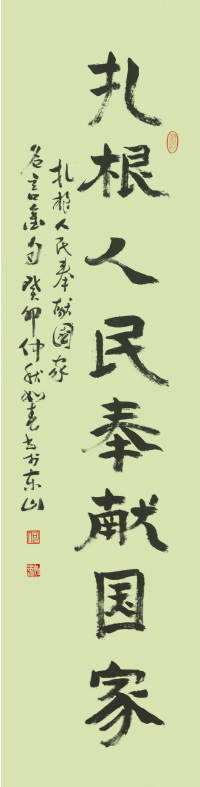 扎根人民奉献国家
扎根人民奉献国家
名言金句癸卯仲秋如春书于东山